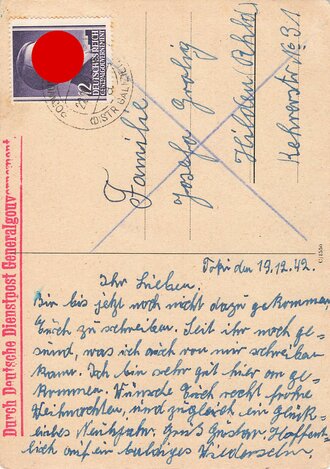 DEUTSCHES REICH
GENERALGOUVERNEMENT
12
DISTR GAL
Durch Deutsche Dienstpost Generalgouvernement
Familie
Josefa
Hilden Rhld
31
den 19.12.42.
Ihr Lieben.
Bin bis jetzt noch nicht dazu gekommen
Euch zu schreiben. Seit ihr noch ge-
sund, was ich auch von mir schreiben
kann. Ich bin sehr gut hier an ge-
kommen. Wünsche Euch recht frohe
Weihnachten, und zugleich ein Glück-
liches Neuhjahr. Gruß Gustav Hoffent-
lich auf ein baldiges Wiedersehn.